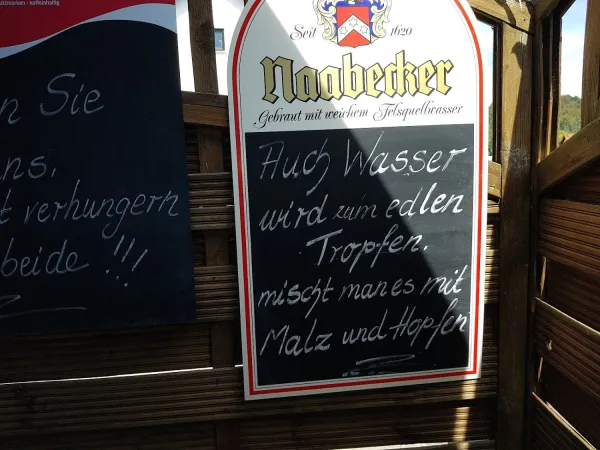 utzmarken · koffeinhaltig
n Sie
ns,
t verhungern
beide !!!
Seit 1620
Naabecker
Gebraut mit weichem Felsquellwasser
Auch Wasser
wird zum edlen
Tropfen,
mischt man es mit
Malz und Hopfen